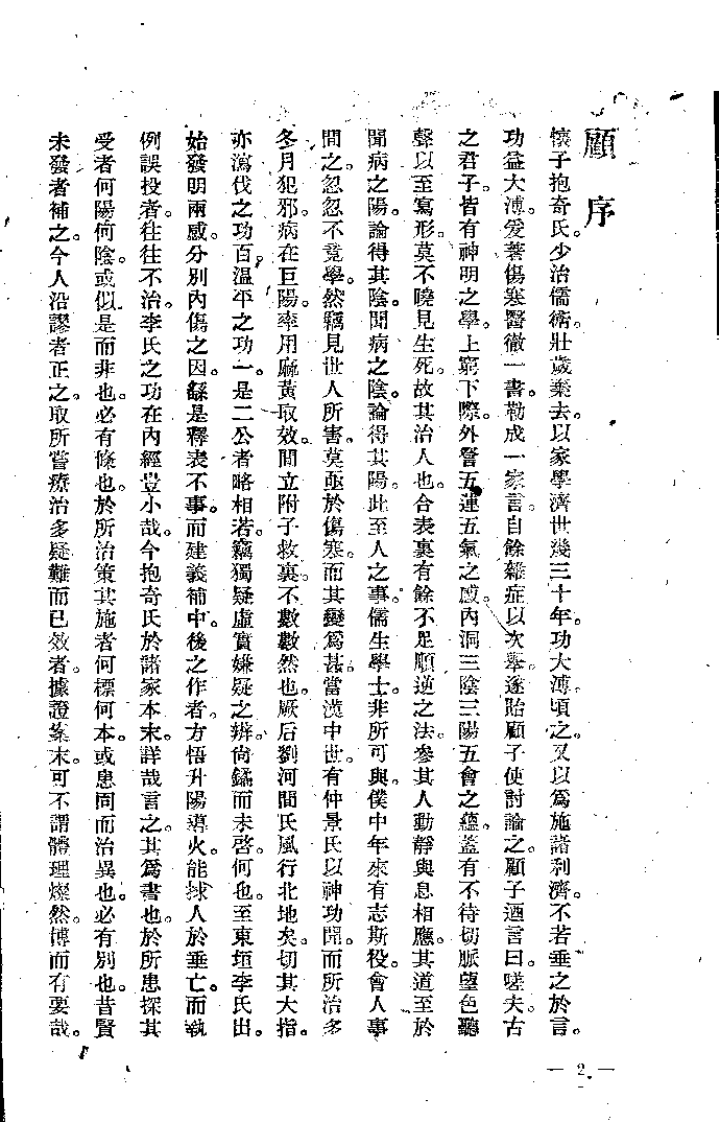 顧序
懷子抱奇氏。少治儒術。壯歲棄去。以家學濟世。幾三十年。功大溥。頃之。又以爲施諸利濟。不若垂之於言。
功益大溥。爰著傷寒醫徹一書。勒成一家言。自餘雜症以次舉。遂貽顧子使討論之。顧子迺言曰。嗟夫。古
之君子。皆有神明之學。上窮下際。外警五運五氣之感。內洞三陰三陽五會之蘊。蓋有不待切脈望色聽
聲以至寫形。莫不曉見生死。故其治人也。合表裏有餘不足順逆之法。參其人動靜與息相應。其道至於
聞病之陽。論得其陰。聞病之陰。論得其陽。此至人之事。儒生學士。非所可與。僕中年來有志斯役。會人事
間之。忽忽不竟學。然竊見世人所害。莫亟於傷寒。而其變爲甚。當漢中世。有仲景氏以神功開。而所治多
冬月犯邪。病在巨陽。率用麻黃取效。間立附子救裏。不數數然也。厥后劉河間氏風行北地矣。切其大指。
亦瀉伐之功百。溫平之功一。是二公者略相若。竊獨疑虛實嫌疑之辨。尙鐍而未啓。何也。至東垣李氏出。
始發明兩感。分別內傷之因。繇是釋表不事。而建義補中。後之作者。方悟升陽導火。能捄人於垂亡。而執
例誤投者。往往不治。李氏之功在內經豈小哉。今抱奇氏於諸家本末。詳哉言之。其爲書也。於所患探其
受者何陽何陰。或似是而非也。必有條也。於所治策其施者何標何本。或患同而治異也。必有別也。昔賢
未發者補之。今人沿謬者正之。取所嘗療治多疑難而已效者。據證案末。可不謂體理燦然。博而有要哉。
— 2 —